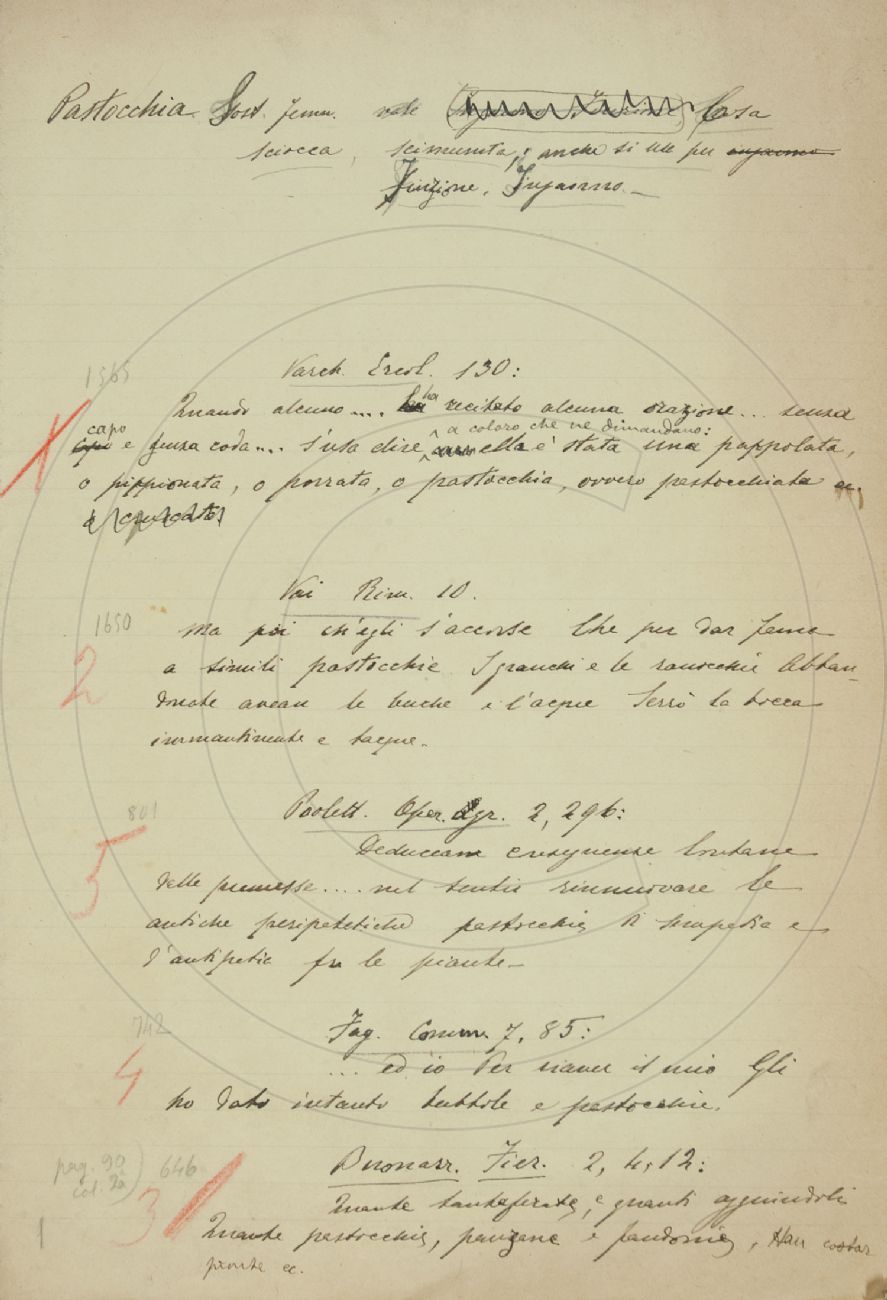 Pastocchia. Sost. femm. vale Cosa
sciocca, scimunita; anche si usa per inganno
Finzione, Inganno.
1565
Varch. Ercol. 130:
Quando alcuno.... ha recitato alcuna orazione... senza
capo
a coloro che ne dimandano:
capo e senza coda.... s'usa dire ella è stata una pappolata,
o pippionata, o porrata, o pastocchia, ovvero pastocchiata ec.
1650
Vai Rim. 10.
2
Ma poi ch'egli s'accorse Che per dar fama
a simili pastocchie I granchi e le ranocchie Abban-
donate avean le buche e l'acque Serrò la bocca
immantinente e tacque.
801
Paolett. Oper. Agr. 2, 296:
5
Deducean conseguenze lontane
dalle premesse.... nel sentir rinnuovare le
antiche peripatetiche pastocchie di simpatia e
d'antipatia fra le piante
742
Fag. Comm. 7, 85:
4
... ed io Per riaver il mio Gli
ho dato intanto bubbole e pastocchie.
pag. 90
col. 2a
646
Buonarr. Fier. 2, 4, 12:
3
Quante tantaferate, e quanti agguindoli
1
Quante pastocchie, panzane e fandonie, Han costor
piante ec.